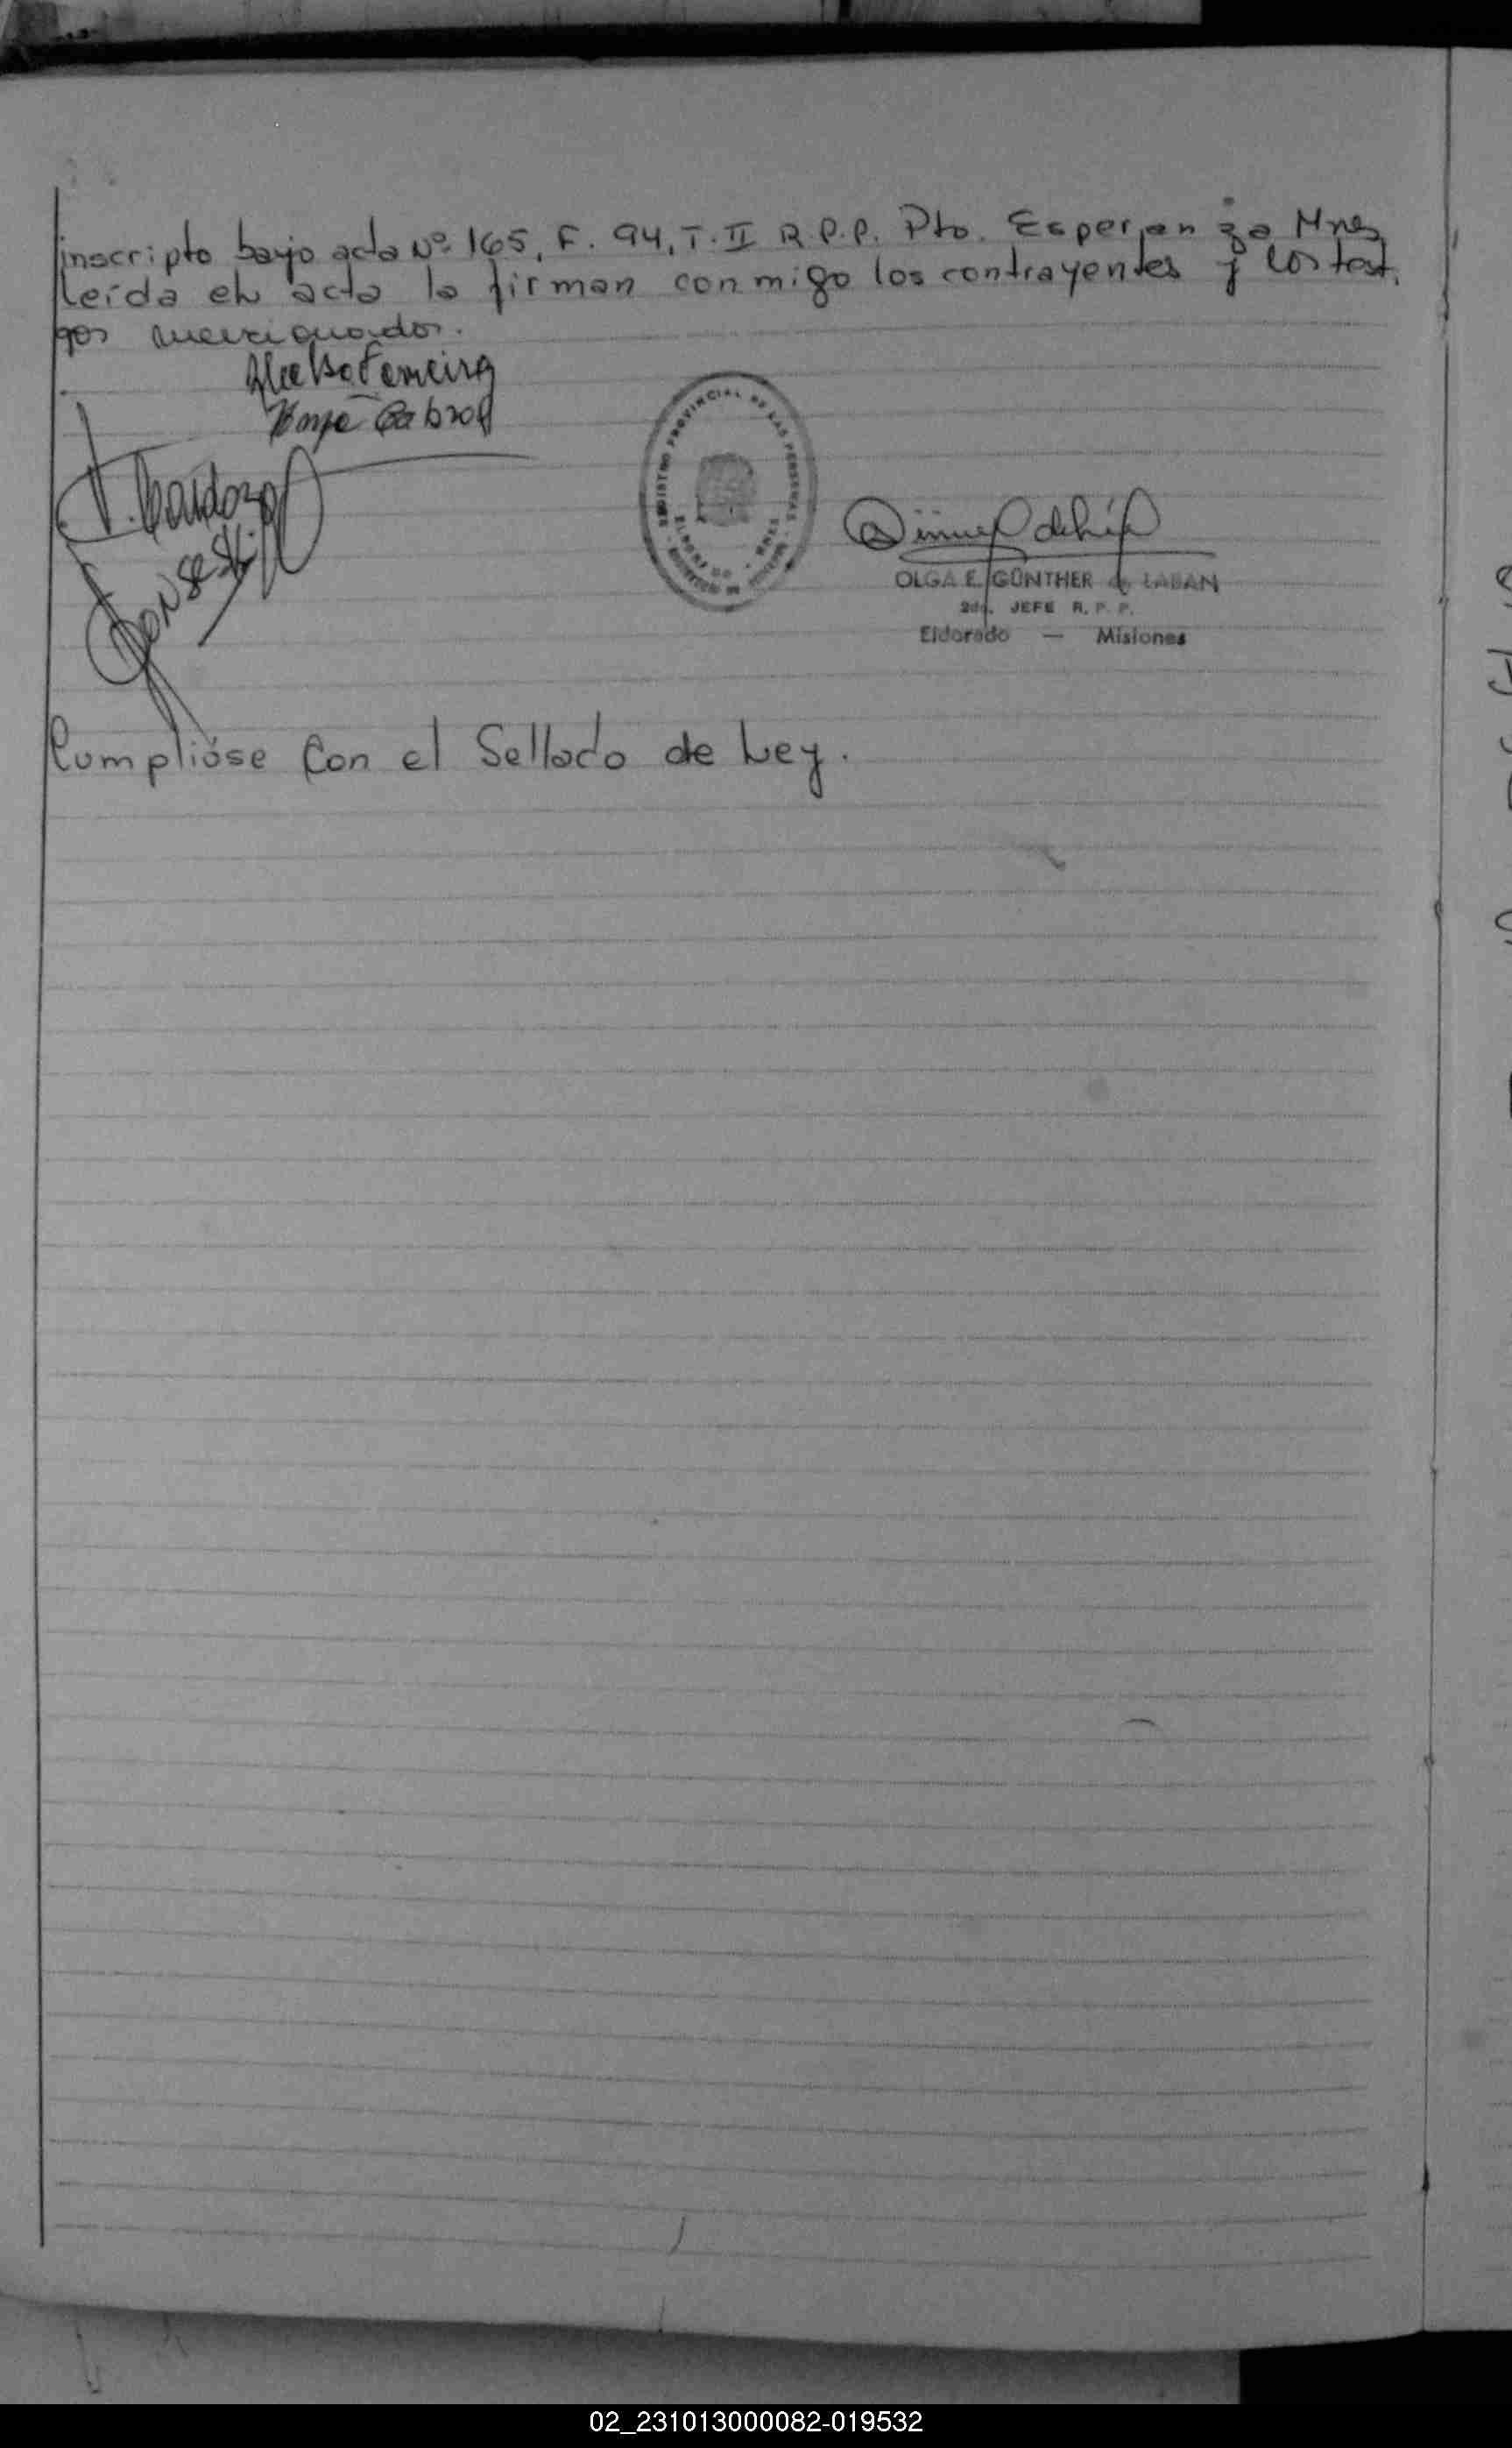 inscripto bajo acta Nº 165, F. 94, T. II R.P.P. Pto. Esperanza Mnes
Leída el acta la firman conmigo los contrayentes y los testi
gos mencionados.
Ferreira
Cabral
REGISTRO PROVINCIAL DE LAS PERSONAS
ELDORADO - MNES
Cardozo
OLGA E. GÜNTHER de LABAN
2do. JEFE R. P. P.
Eldorado — Misiones
Cumplióse Con el Sellado de Ley.
02_231013000082-019532